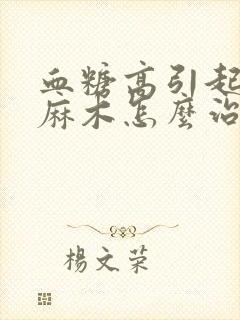 血糖高引起
麻木怎麼治
楊文荣